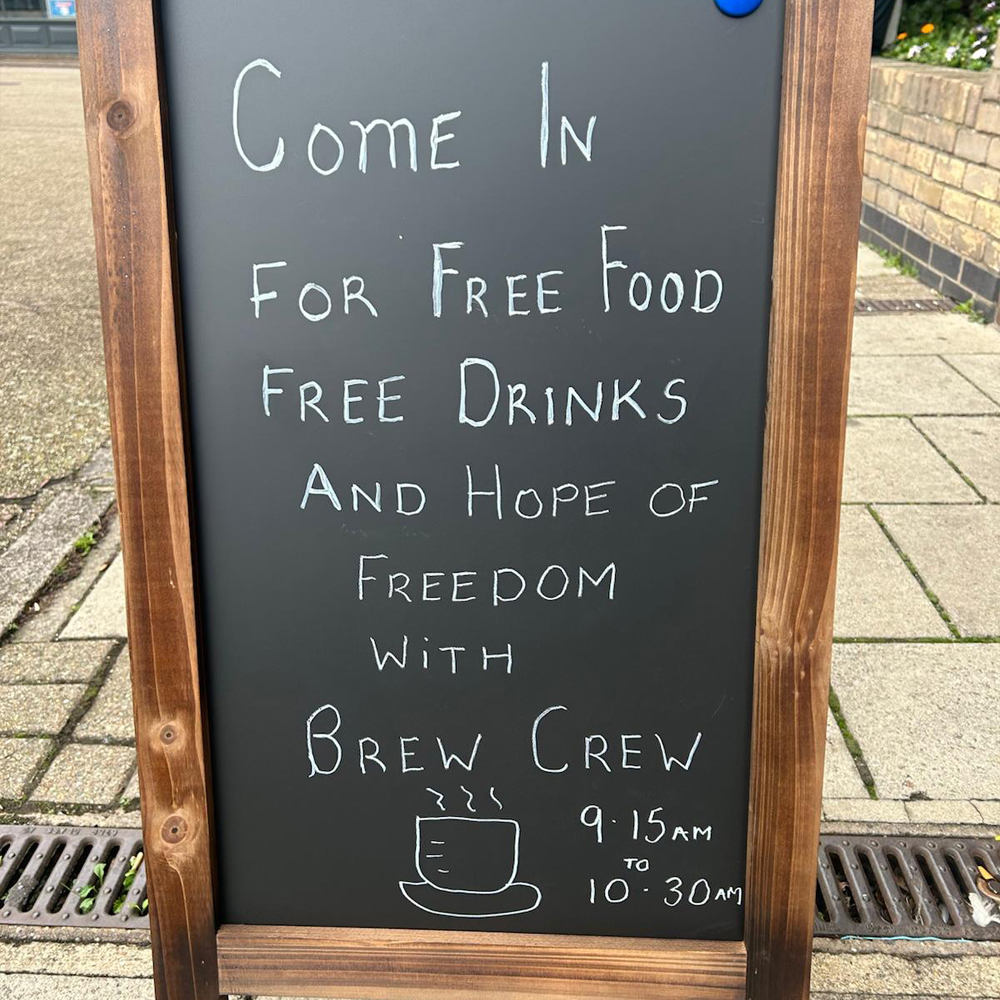 Come In
FOR FREE FOOD
FREE DRINKS
AND HOPE OF
FREEDOM
WiTH
BREW CREW
9.15AM
TO
10.30AM